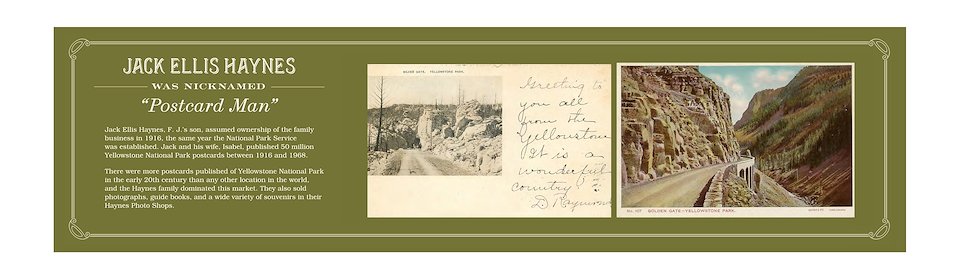 JACK ELLIS HAYNES
WAS NICKNAMED
“Postcard Man”
Jack Ellis Haynes, F. J.’s son, assumed ownership of the family
business in 1916, the same year the National Park Service
was established. Jack and his wife, Isabel, published 50 million
Yellowstone National Park postcards between 1916 and 1968.
There were more postcards published of Yellowstone National Park
in the early 20th century than any other location in the world,
and the Haynes family dominated this market. They also sold
photographs, guide books, and a wide variety of souvenirs in their
Haynes Photo Shops.
SILVER GATE, YELLOWSTONE PARK.
Greeting to
you all
from the
Yellowstone
It is a
wonderful
country
D
No. 107 GOLDEN GATE—YELLOWSTONE PARK.